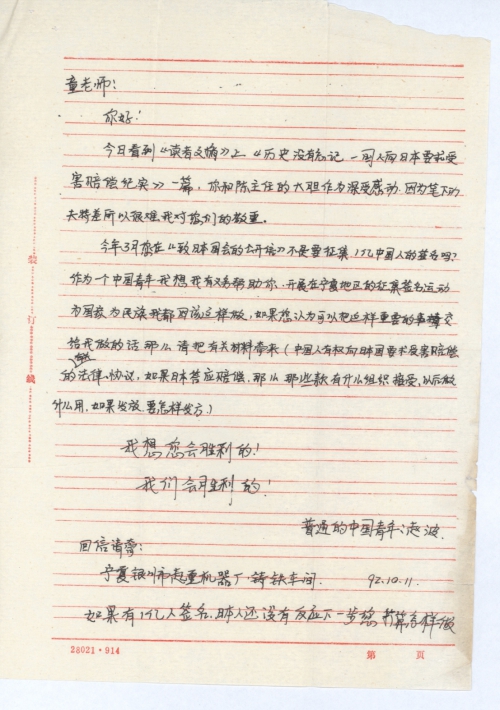 童老师:
你好!
今日看到《读者文摘》上《历史没有忘记 一国人向日本要求受
害赔偿纪实》一篇,你和陈主任的大胆作为深受感动,因为笔下的
夫特差所以很难我对您们的敬重。
今年3月您在《致日本国会的公开信》不是要征集1亿中国人的签名吗?
作为一个中国青年我想我有义务帮助你,开展在宁夏地区的征集签名运动
为国家为民族我都因该这样做,如果您认为可以把这样重要的事情交
给我做的话那么请把有关材料寄来(中国人有权向日本国要求受害赔偿
的法律、协议,如果日本答应赔偿,那么那些款有什么组织接受,以后做
什么用,如果发放要怎样发方。)
我想您会胜利的!
我们会胜利的!
普通的中国青年:志波
回信请寄:
宁夏银川市起重机器厂铸铁车间 92.10.11.
如果有1亿人签名,日本人还没有反应下一步您打算怎样做
装
订
线
28021·914
第 页